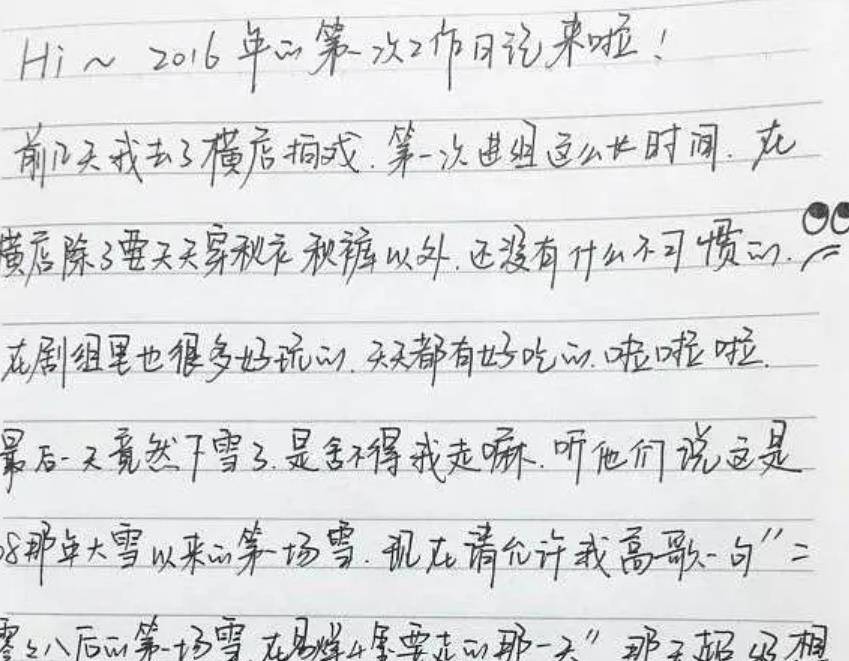 Hi ~ 2016年的第一次工作日记来啦！
前12天我去了横店拍戏.第一次进组这么长时间.在
横店除了要天天穿秋衣秋裤以外.还没有什么不习惯的.
在剧组里也很多好玩的.天天都有好吃的.啦啦啦.
最后一天竟然下雪了.是舍不得我走嘛.听他们说这是
08那年大雪以来的第一场雪.现在请允许我高歌一句"二
零零八后的第一场雪.在易烊千玺要走的那一天"那天超级想